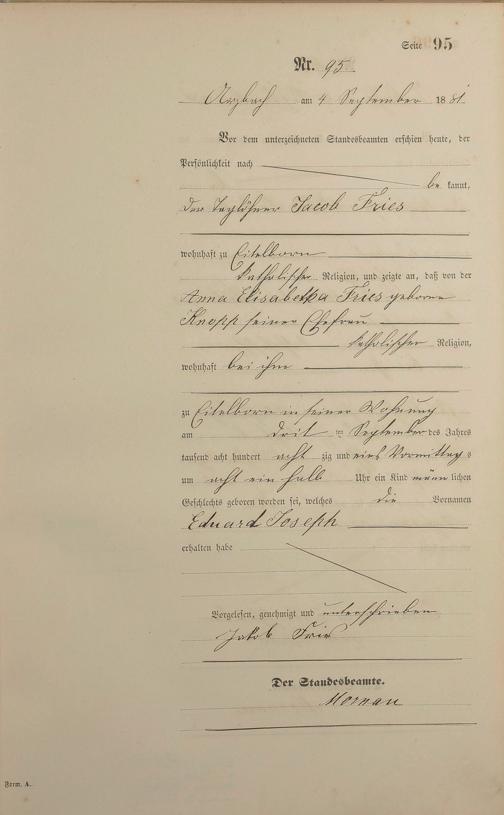 Seite 95
Nr. 95
Arzbach am 4 September 1881.
Vor dem unterzeichneten Standesbeamten erschien heute, der
Persönlichkeit nach
be kannt,
der Taglöhner Jacob Fries
wohnhaft zu Eitelborn
katholischer Religion, und zeigte an, daß von der
Anna Elisabetha Fries geborne
Knopp seiner Ehefrau
katholischer Religion,
wohnhaft bei ihm
zu Eitelborn in seiner Wohnung
am drit ten September des Jahres
tausend acht hundert acht zig und eins Vormittags
um acht ein halb Uhr ein Kind männ lichen
Geschlechts geboren worden sei, welches die Vornamen
Eduard Joseph
erhalten habe
Vorgelesen, genehmigt und unterschrieben
Jakob Fries
Der Standesbeamte.
Form. A.